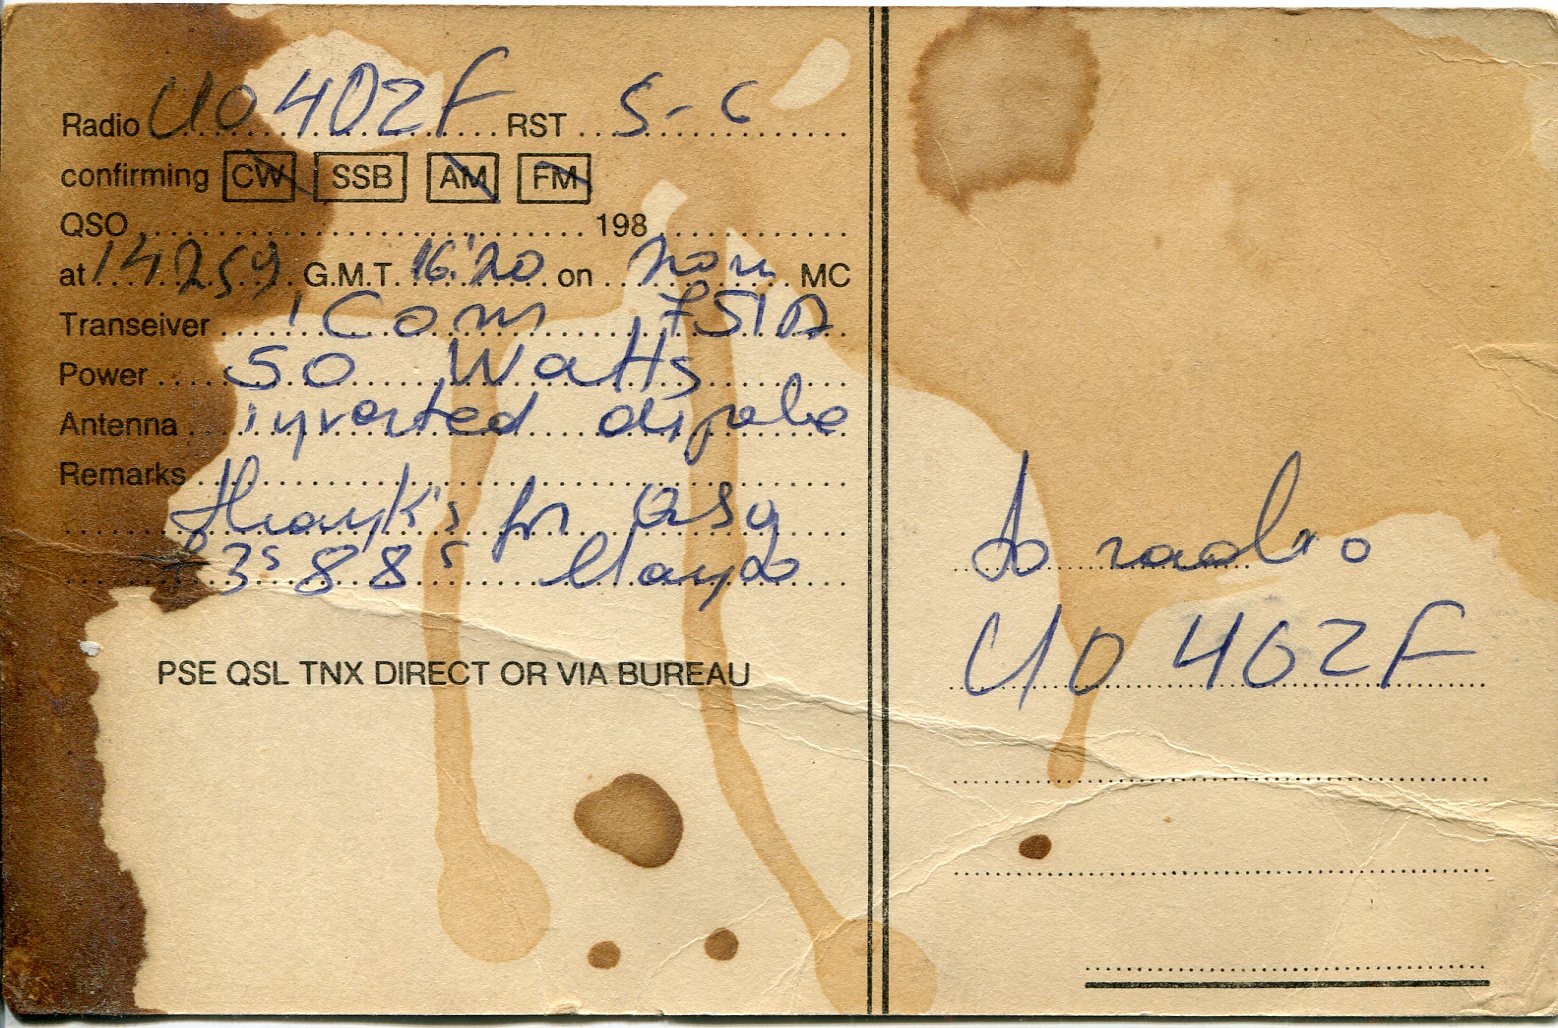 Radio UO4OZF RST S-C
confirming CW SSB AM FM
QSO 198
at 14259 G.M.T. 16:20 on MC
Transeiver iCom 751A
Power 50 Watts
Antenna inverted dipole
Remarks
thank's for QSO
73s 88s
PSE QSL TNX DIRECT OR VIA BUREAU
to radio
UO4OZF